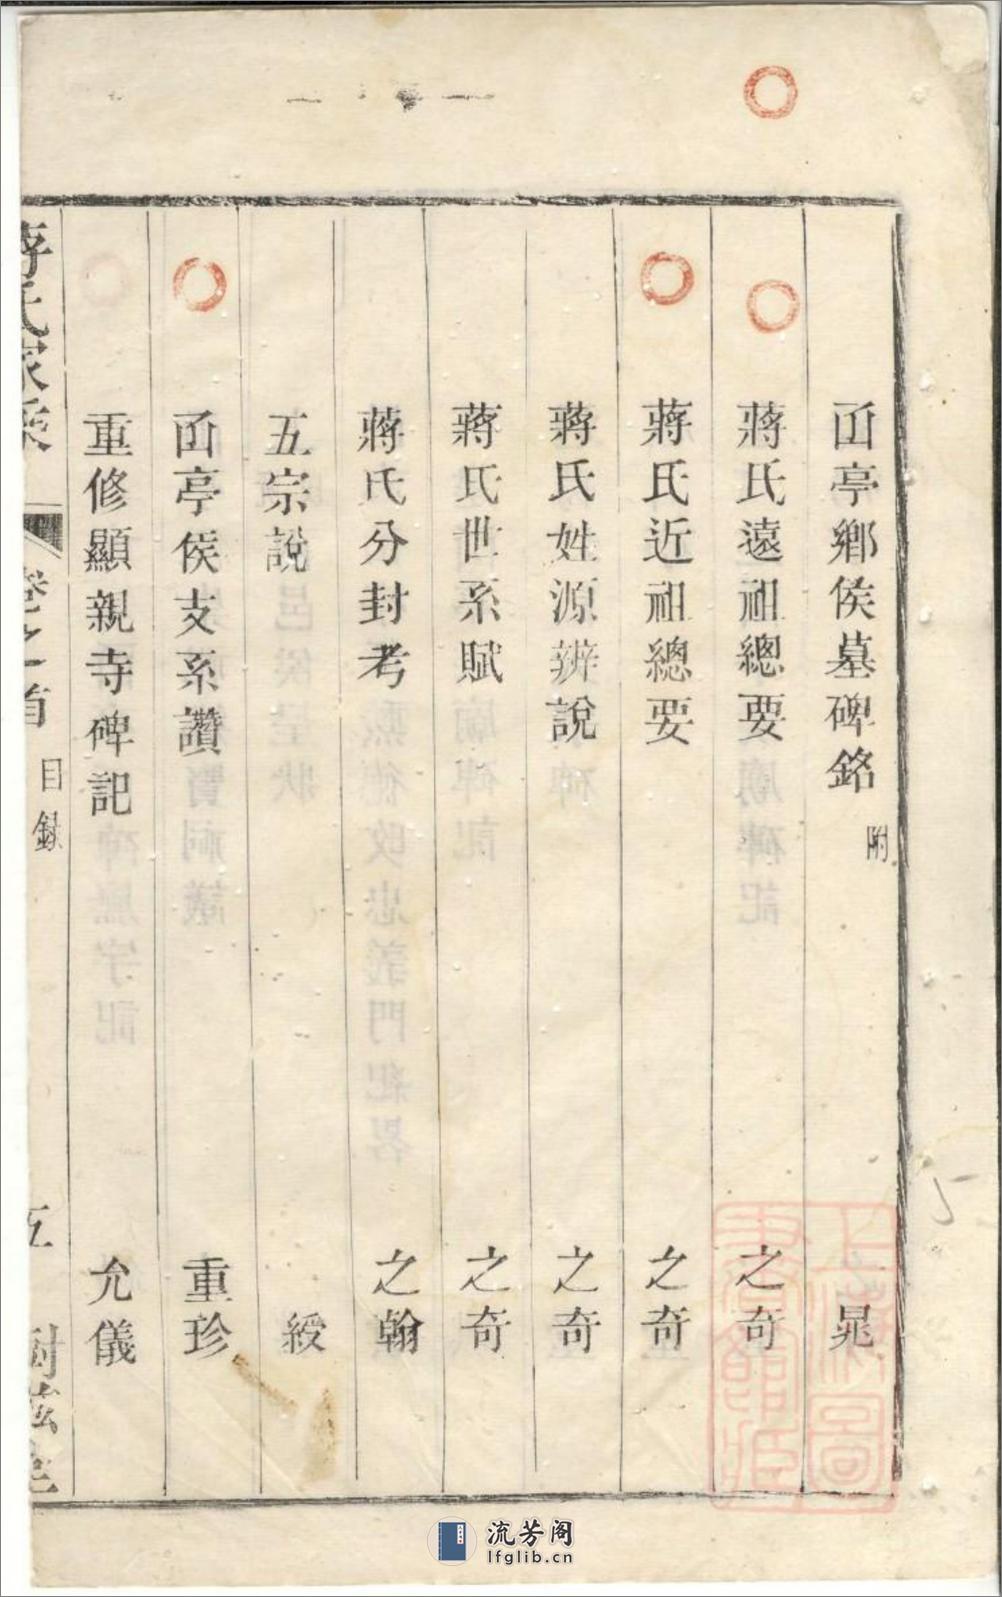 𠚖亭鄉侯墓碑銘 附 晁
蔣氏遠祖總要 之奇
蔣氏近祖總要 之奇
蔣氏姓源辨說 之奇
蔣氏世系賦 之奇
蔣氏分封考 之翰
五宗說 綬
𠚖亭侯支系讚 重珍
重修顯親寺碑記 允儀
蔣氏家乘 卷之首 目錄 五
上海圖書館藏
5
流芳阁
lfglib.cn